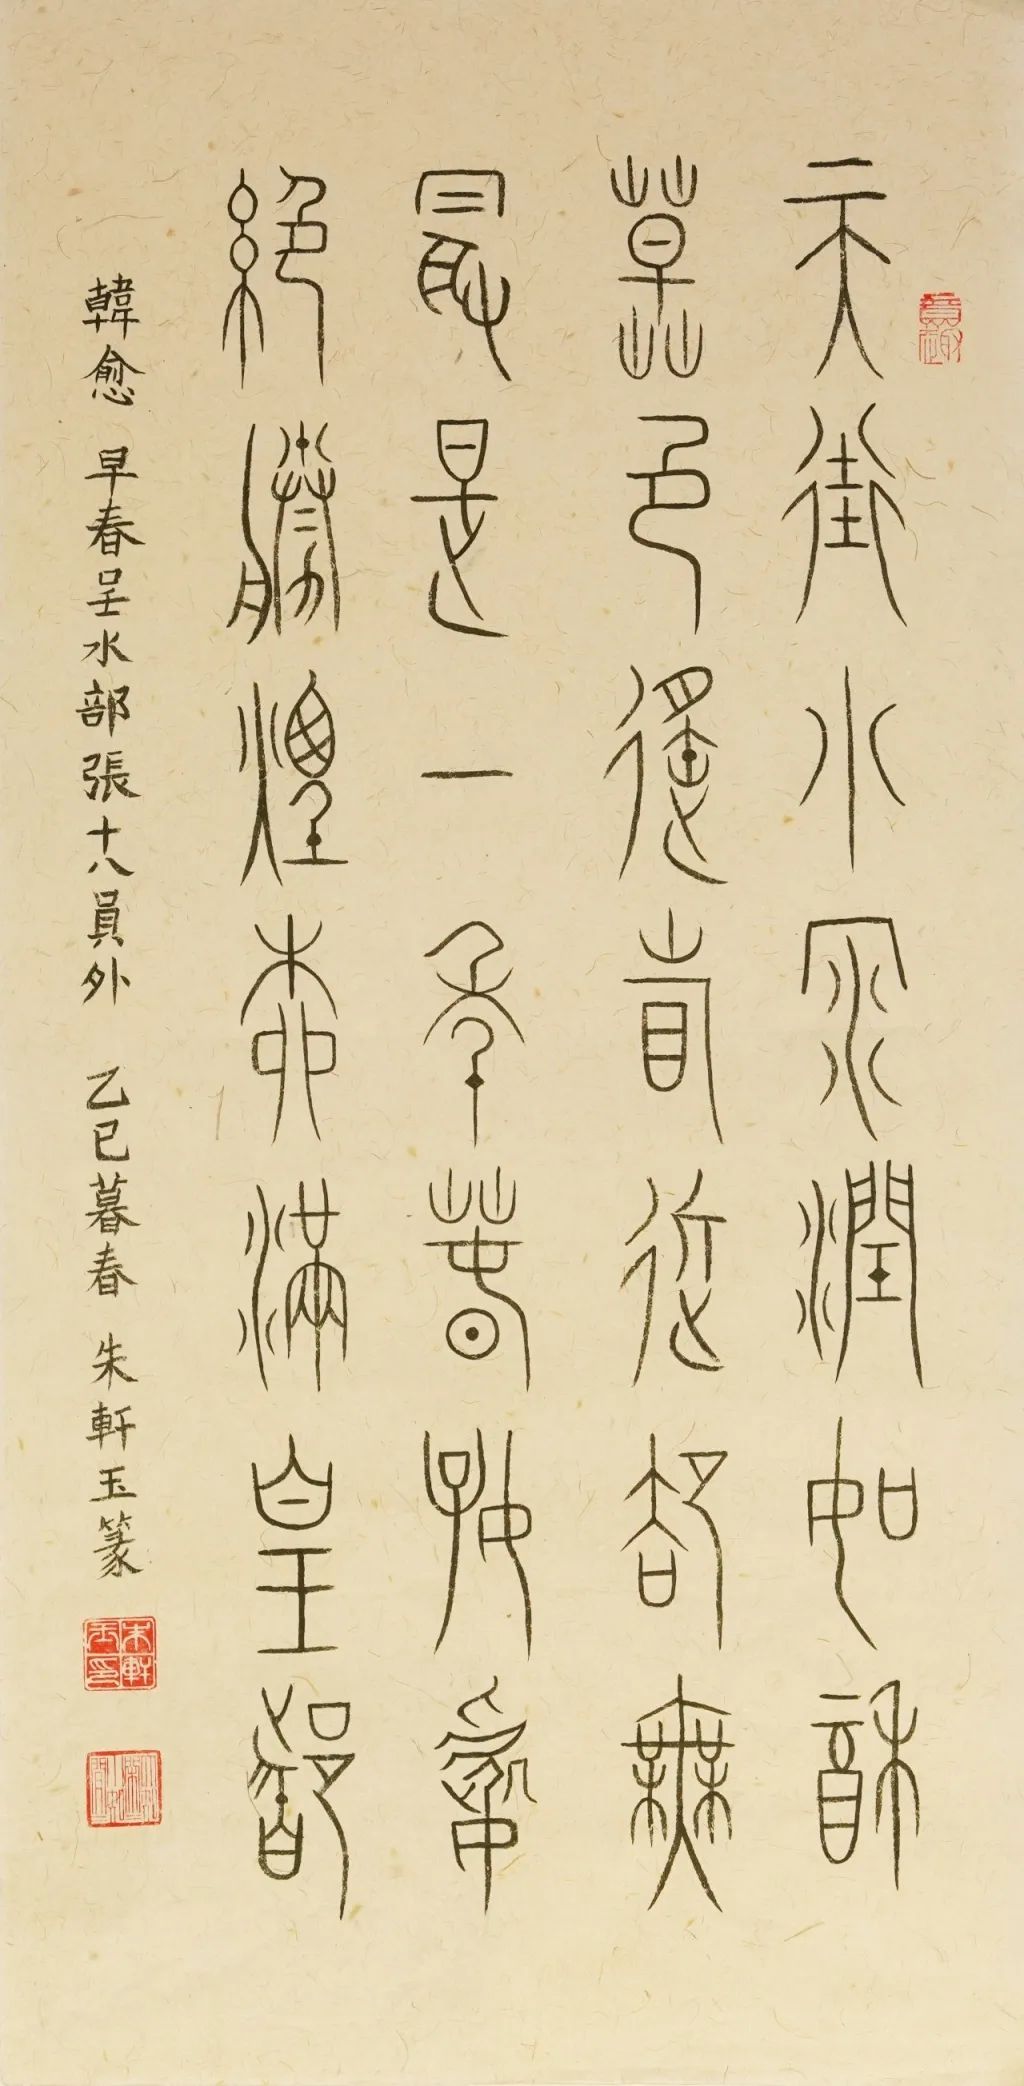 天街小雨潤如酥
草色遙看近卻無
最是一年春好處
絕勝煙柳滿皇都
韓愈 早春呈水部張十八員外 乙巳暮春 朱軒玉篆
朱軒玉印